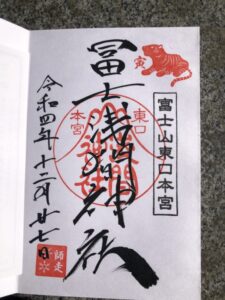 寅
富士山東口本宮
冨士浅間神社
東口
本宮
令和四年十二月廿七日
師走